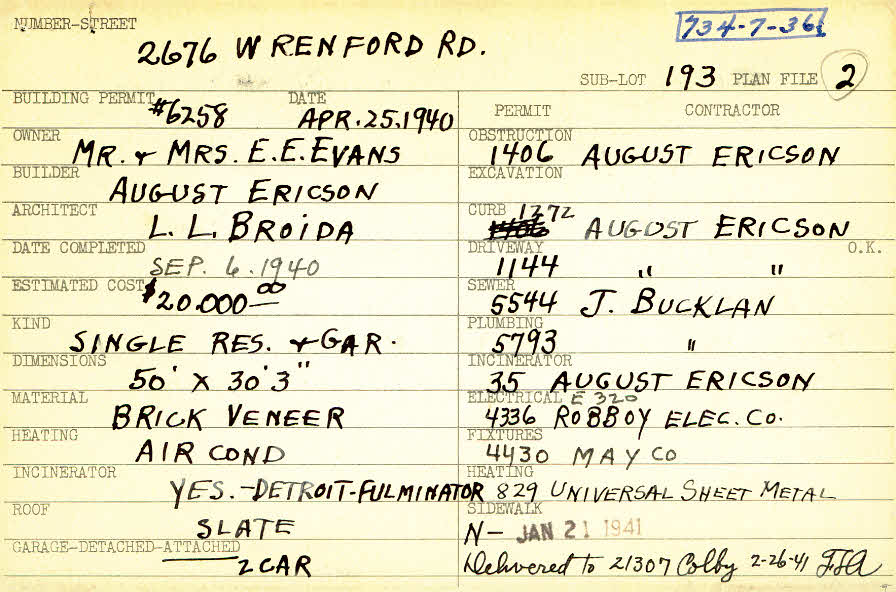 NUMBER-STREET
734-7-36
2676 WRENFORD RD.
SUB-LOT 193 PLAN FILE 2
BUILDING PERMIT #6258 DATE APR. 25, 1940
OWNER MR. & MRS. E. E. EVANS
BUILDER AUGUST ERICSON
ARCHITECT L. L. BROIDA
DATE COMPLETED SEP. 6. 1940
ESTIMATED COST $20.000 00
KIND SINGLE RES. & GAR.
DIMENSIONS 50' X 30' 3"
MATERIAL BRICK VENEER
HEATING AIR COND
INCINERATOR YES. - DETROIT-FULMINATOR
ROOF SLATE
GARAGE-DETACHED-ATTACHED 2 CAR
PERMIT CONTRACTOR
OBSTRUCTION 1406 AUGUST ERICSON
EXCAVATION
CURB 1272 1406 AUGUST ERICSON
DRIVEWAY 1144 " " O.K.
SEWER 5544 J. BUCKLAN
PLUMBING 5793 "
INCINERATOR 35 AUGUST ERICSON
ELECTRICAL E 320 4336 ROBBOY ELEC. CO.
FIXTURES 4430 MAY CO
HEATING 829 UNIVERSAL SHEET METAL
SIDEWALK N- JAN 21 1941
Delivered to 21307 Colby 2-26-41